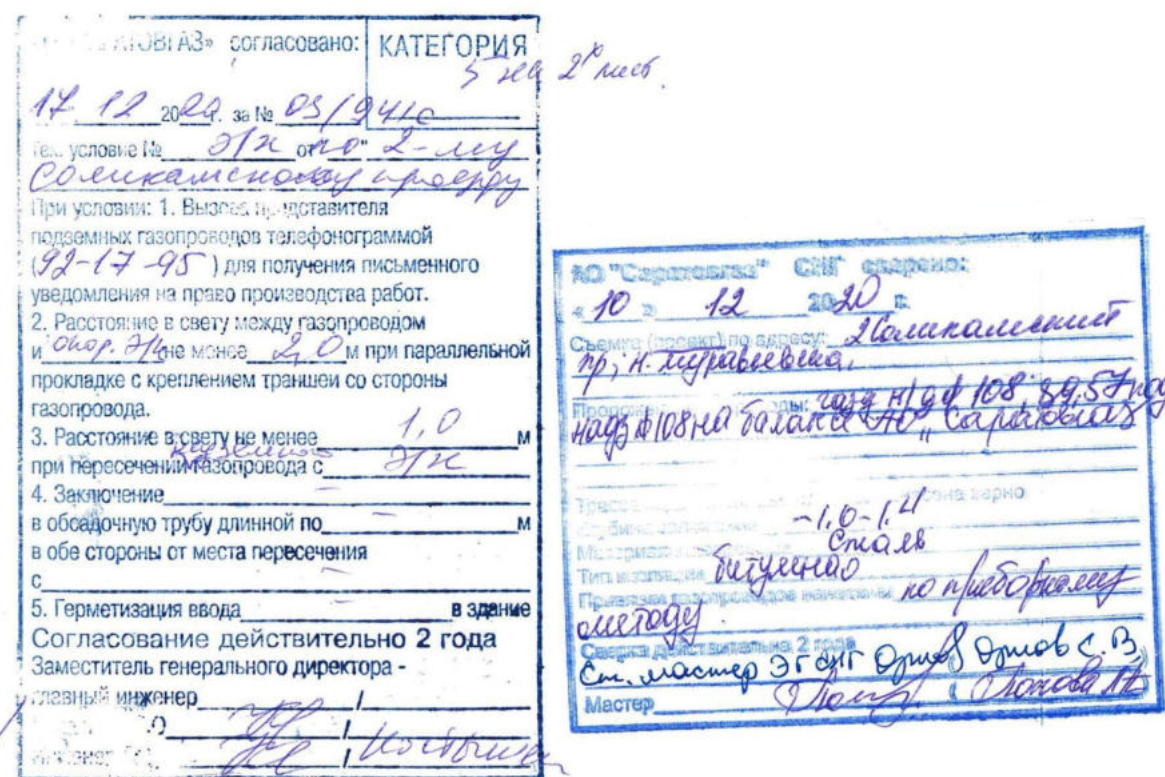 согласовано:
КАТЕГОРИЯ
5 на 2х лист.
17. 12 2020г. за № 03/941с
Тех. условие № Э/х от по" 2-му
Соликамскому проезду
При условии: 1. Вызова представителя
подземных газопроводов телефонограммой
(92-17-95) для получения письменного
уведомления на право производства работ.
2. Расстояние в свету между газопроводом
и опор. не менее 2,0 м при параллельной
прокладке с креплением траншеи со стороны
газопровода.
3. Расстояние в свету не менее 1,0 м
при пересечении газопровода с Э/х
4. Заключение
в обсадочную трубу длинной по м
в обе стороны от места пересечения
с
5. Герметизация ввода в здание
Согласование действительно 2 года
Заместитель генерального директора -
главный инженер /
/
инженер /
АО "Саратовгаз" СНГ сверено:
« 10 » 12 2020 г.
Съемка (проект) по адресу: 2 Соликамский
пр; н.
газд н/д ф 108, 89, 57 под
надз ф 108 на балансе АО „Саратовгаз
верно
-1.0-1.4
Сталь
Тип изоляции битумная
Привязки газопроводов нанесены по приборному
методу
Сверка действительна 2 года
Ст. мастер ЭГ СНГ Орлов С. В.
Мастер (Попова